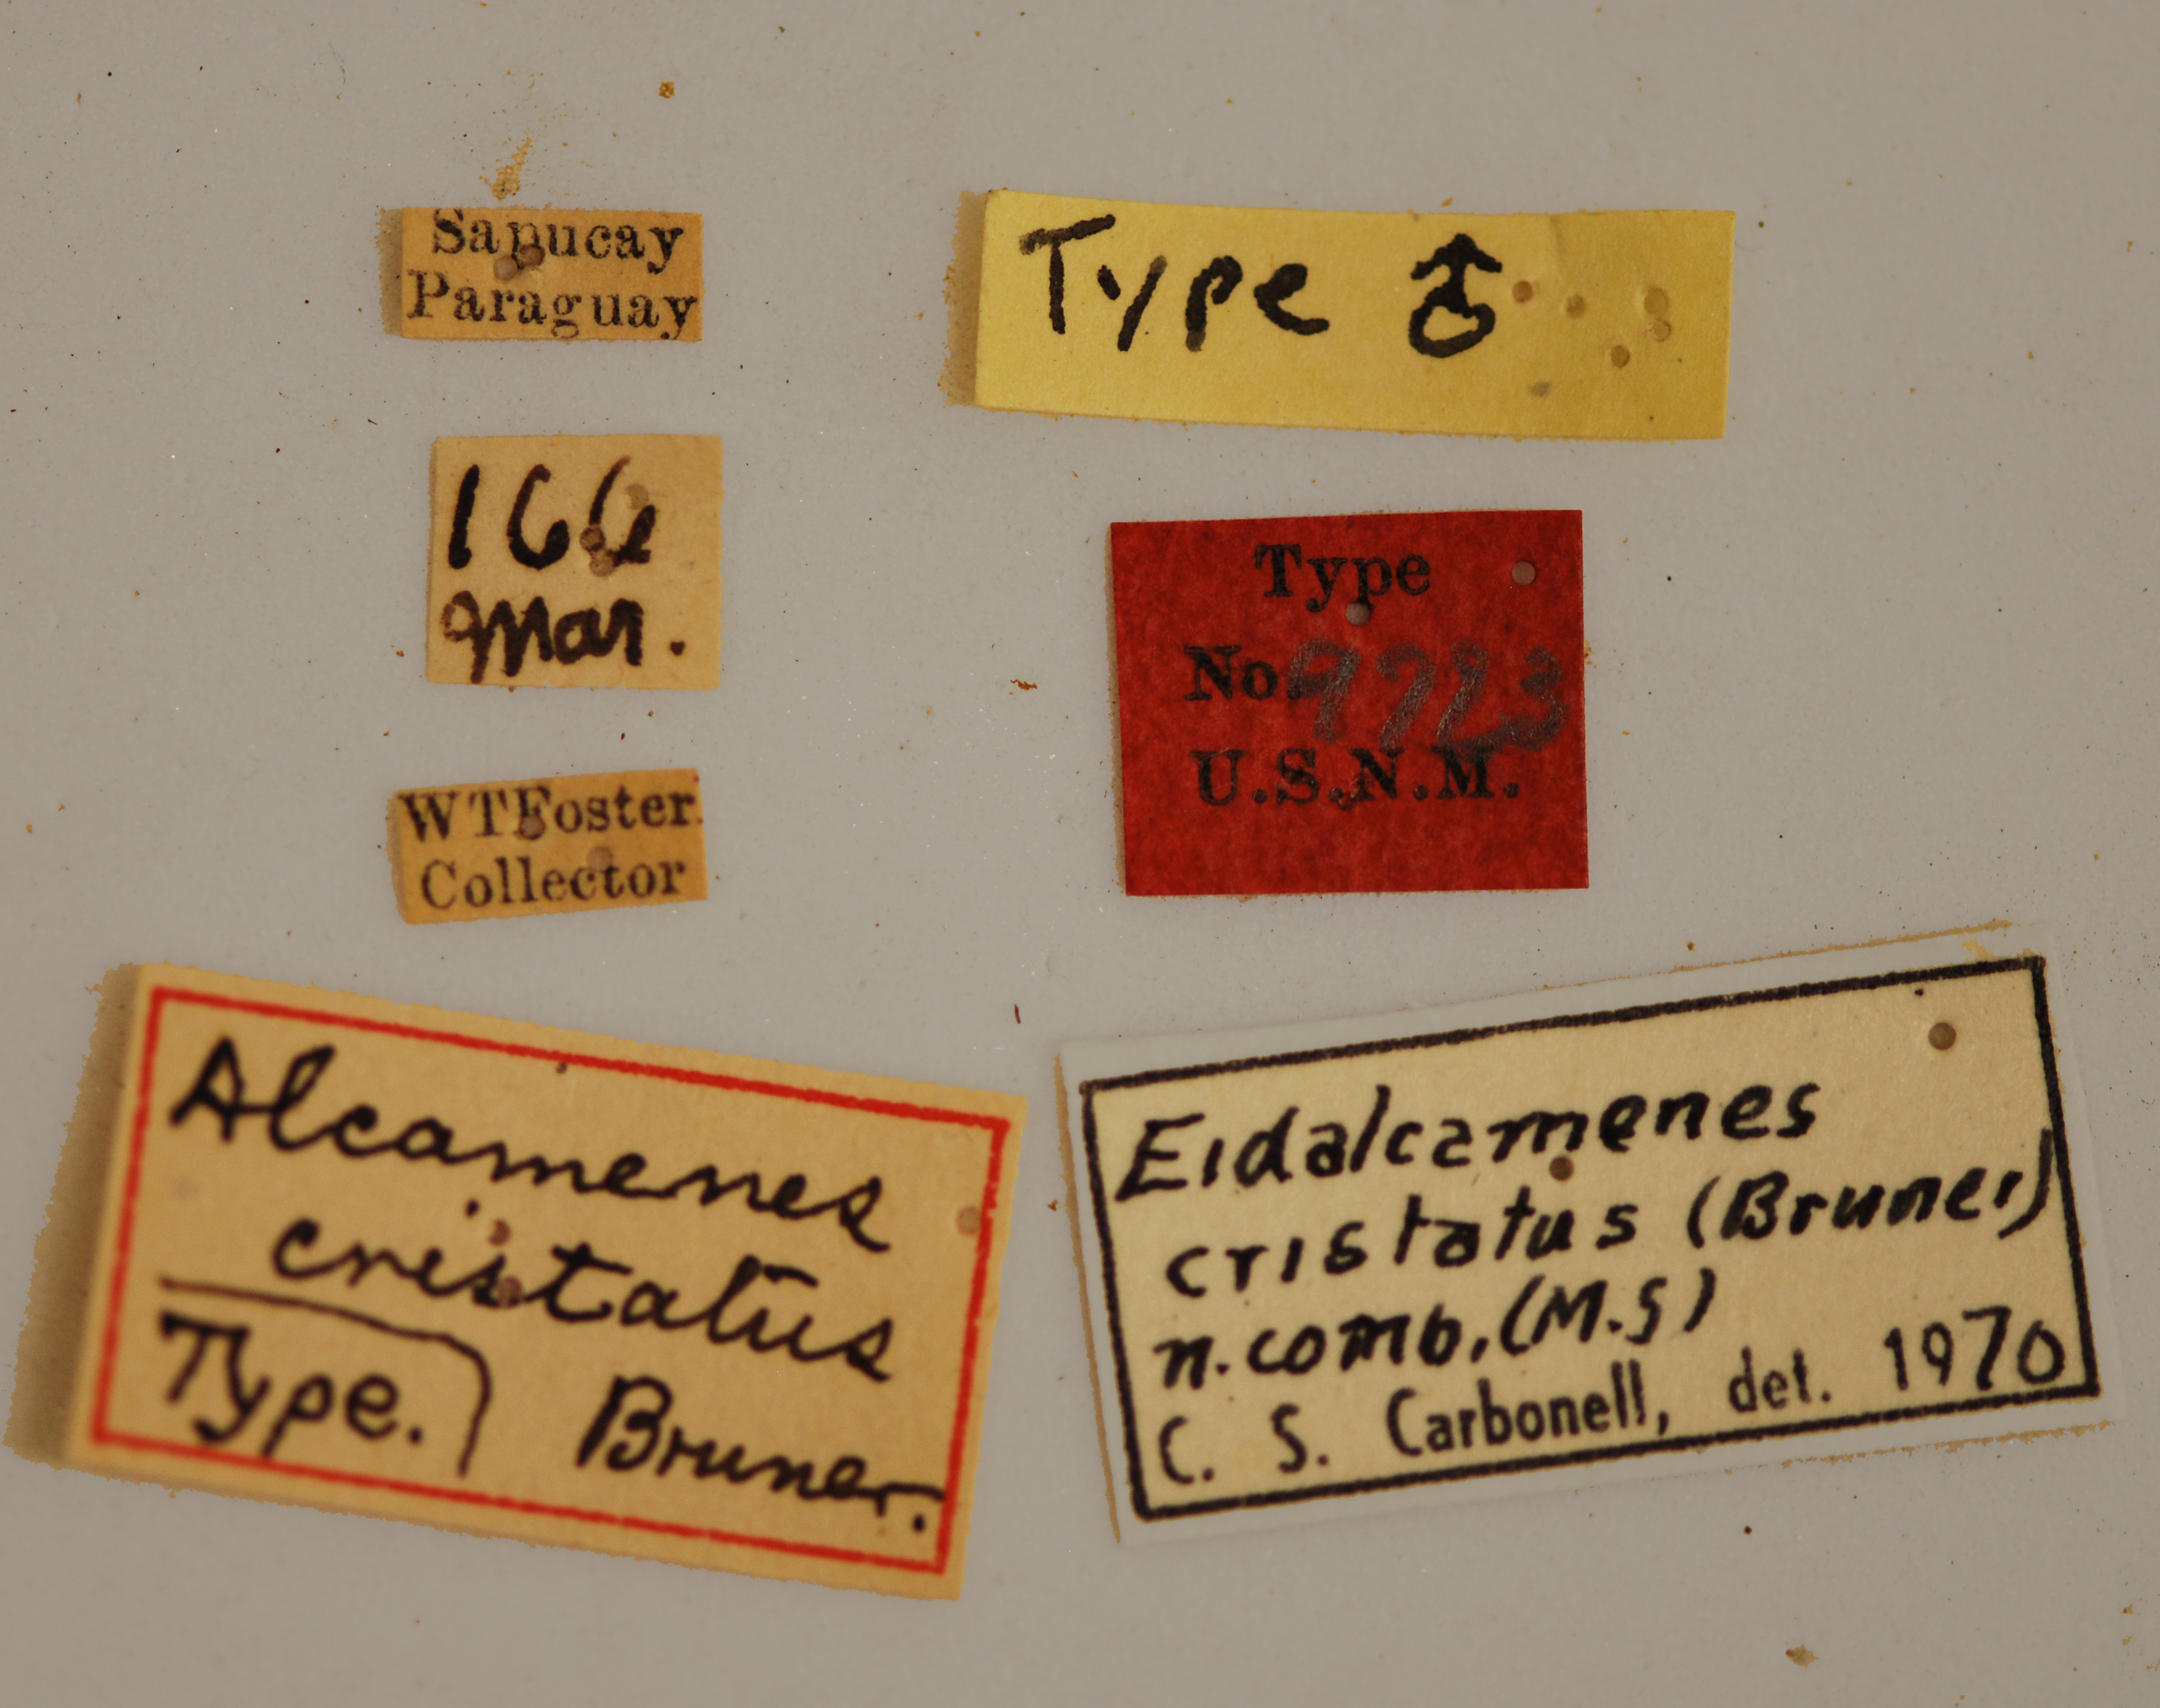 Sapucay
Paraguay
Type ♂
166
Mar.
Type
No. 9723
U.S.N.M.
WTFoster
Collector
Alcamenes
cristatus
Type. Bruner.
Eidalcamenes
cristatus (Bruner)
n. comb. (M.S)
C. S. Carbonell, det. 1970